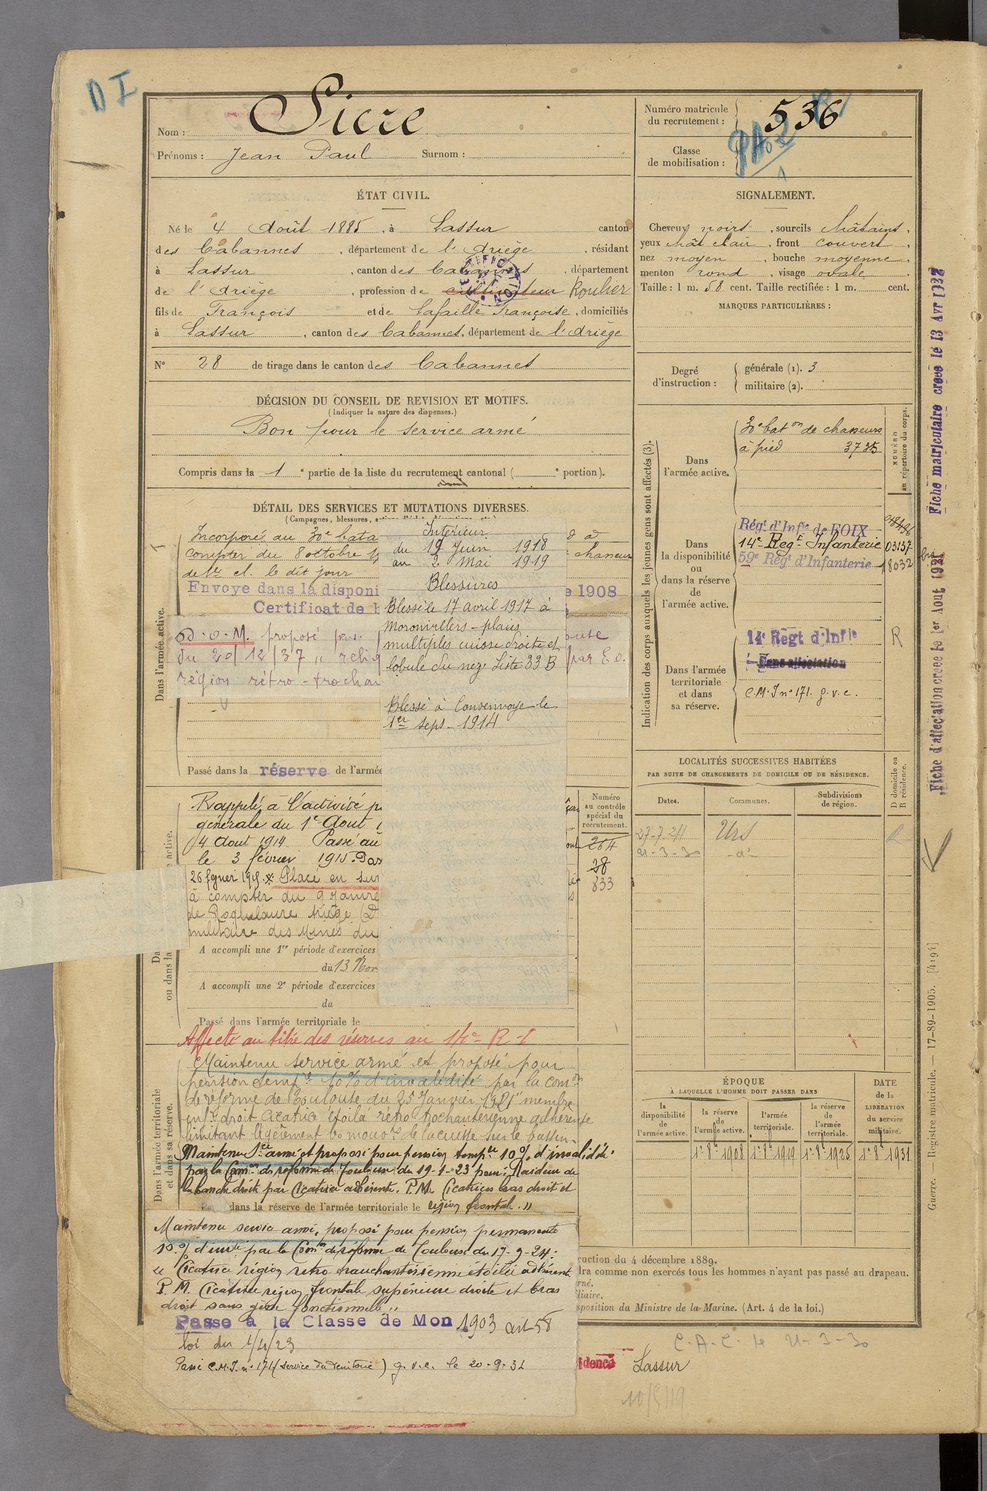 D I
Nom : Sicre
Prénoms : Jean Paul Surnom :
Numéro matricule du recrutement : 536
Classe de mobilisation :
ÉTAT CIVIL.
Né le 4 Août 1885, à Lassur canton
des Cabannes, département de l'Ariège, résidant
à Lassur, canton des Cabannes, département
de l'Ariège, profession de cultivateur Roulier
fils de François et de Lafaille Françoise, domiciliés
à Lassur, canton des Cabannes, département de l'Ariège
N° 28 de tirage dans le canton des Cabannes
DÉCISION DU CONSEIL DE REVISION ET MOTIFS.
(Indiquer la nature des dispenses.)
Bon pour le service armé
Compris dans la 1e partie de la liste du recrutement cantonal ( e portion).
SIGNALEMENT.
Cheveux noirs, sourcils châtains,
yeux chât clair, front couvert,
nez moyen, bouche moyenne,
menton rond, visage ovale.
Taille : 1 m. 58 cent. Taille rectifiée : 1 m. cent.
MARQUES PARTICULIÈRES :
Degré d'instruction :
générale (1). 3
militaire (2).
Indication des corps auxquels les jeunes gens sont affectés (3).
NUMÉRO au répertoire du corps.
Dans l'armée active.
30e baton de chasseurs
à pied 3735
Dans la disponibilité ou dans la réserve de l'armée active.
Régt d'Infie de FOIX
14e Regt Infanterie 03137
59e Régt d'Infanterie 18032
Dans l'armée territoriale et dans sa réserve.
14e Régt d'Infie R
Sans affectation
C.M.I n° 171. g.v.c.
DÉTAIL DES SERVICES ET MUTATIONS DIVERSES.
Dans l'armée active.
Incorporé au 30e bata
compter du 8 octobre
de 2e cl. le dit jour
chasseur
Envoyé dans la disponi
e 1908
Certificat de b
D.O.M. proposé pas
du 20/12/37
région rétro-trochan
par E.O.
Passé dans la réserve de l'armée
Intérieur
du 19 Juin 1918
au 2 Mai 1919
Blessures
Blessé le 17 avril 1917 à
Moronvillers - plaies
multiples cuisse droite et
lobule du nez. Liste 33 B
Blessé à Consenvoye le
1er sept - 1914
Rappelé à l'activité p
générale du 1er Aout
4 Aout 1914 Passé au
le 3 février 1915. Pas
26 fevrier 1915. Placé en sur
à compter du 9 Janvier
de Roquelaure Ariège
militaire des Mines du
A accompli une 1re période d'exercices
du 13 Nov
A accompli une 2e période d'exercices
du
Passé dans l'armée territoriale le
Numéro au contrôle spécial du recrutement.
284
28
833
Affecté au titre des réserves au 14e R I
Dans l'armée territoriale et dans sa réserve.
Maintenu service armé et proposé pour
pension tempre 10% d'invalidité par la Comon
de réforme de Toulouse du 25 Janvier 1921 membre
inf. droit cicatrice étoilée rétro trochantérienne adhérente
limitant légèrement les mouvts de la cuisse sur le bassin
Maintenu Sce armé et proposé pour pension tempre 10% d'invalidité
par la Comon de réforme de Toulouse du 19-1-23 pour : Raideur de
la hanche droit par cicatrice adhérente. P.M. Cicatrices bras droit et
dans la réserve de l'armée territoriale le région frontale. "
Maintenu service armé, proposé pour pension permanente
10% d'invté par la Comon de réforme de Toulouse du 17-9-24 :
Cicatrice région retro trauchantérienne étoilée adhérente
P.M. Cicatrice région frontale supérieure droite et bras
droit sans gêne fonctionnelle "
Passé à la Classe de Mon 1903 art 58
loi du 1/4/23
Passé C.M.I. n° 171 (Service du Territoire) g.v.c. le 20-9-31
LOCALITÉS SUCCESSIVES HABITÉES
PAR SUITE DE CHANGEMENTS DE DOMICILE OU DE RÉSIDENCE.
Dates. Communes. Subdivisions de région. D domicile ou R résidence.
27-7-211 Urs
21-3-30 d°
ÉPOQUE
À LAQUELLE L'HOMME DOIT PASSER DANS
la disponibilité de l'armée active.
la réserve de l'armée active.
l'armée territoriale.
la réserve de l'armée territoriale.
DATE de la LIBÉRATION du service militaire.
1er 8bre 1908 1er 8bre 1919 1er 8bre 1925 1er 8bre 1931
ruction du 4 décembre 1889.
dra comme non exercés tous les hommes n'ayant pas passé au drapeau.
sposition du Ministre de la Marine. (Art. 4 de la loi.)
C.A.C. 4 21-3-30
idence Lassur
10/5/19
Fiche matriculaire créée le 13 Avr 1932
Fiche d'affectation créée le 1er Aout 1921
Guerre. — Registre matricule. — 17-89-1905. [4194]